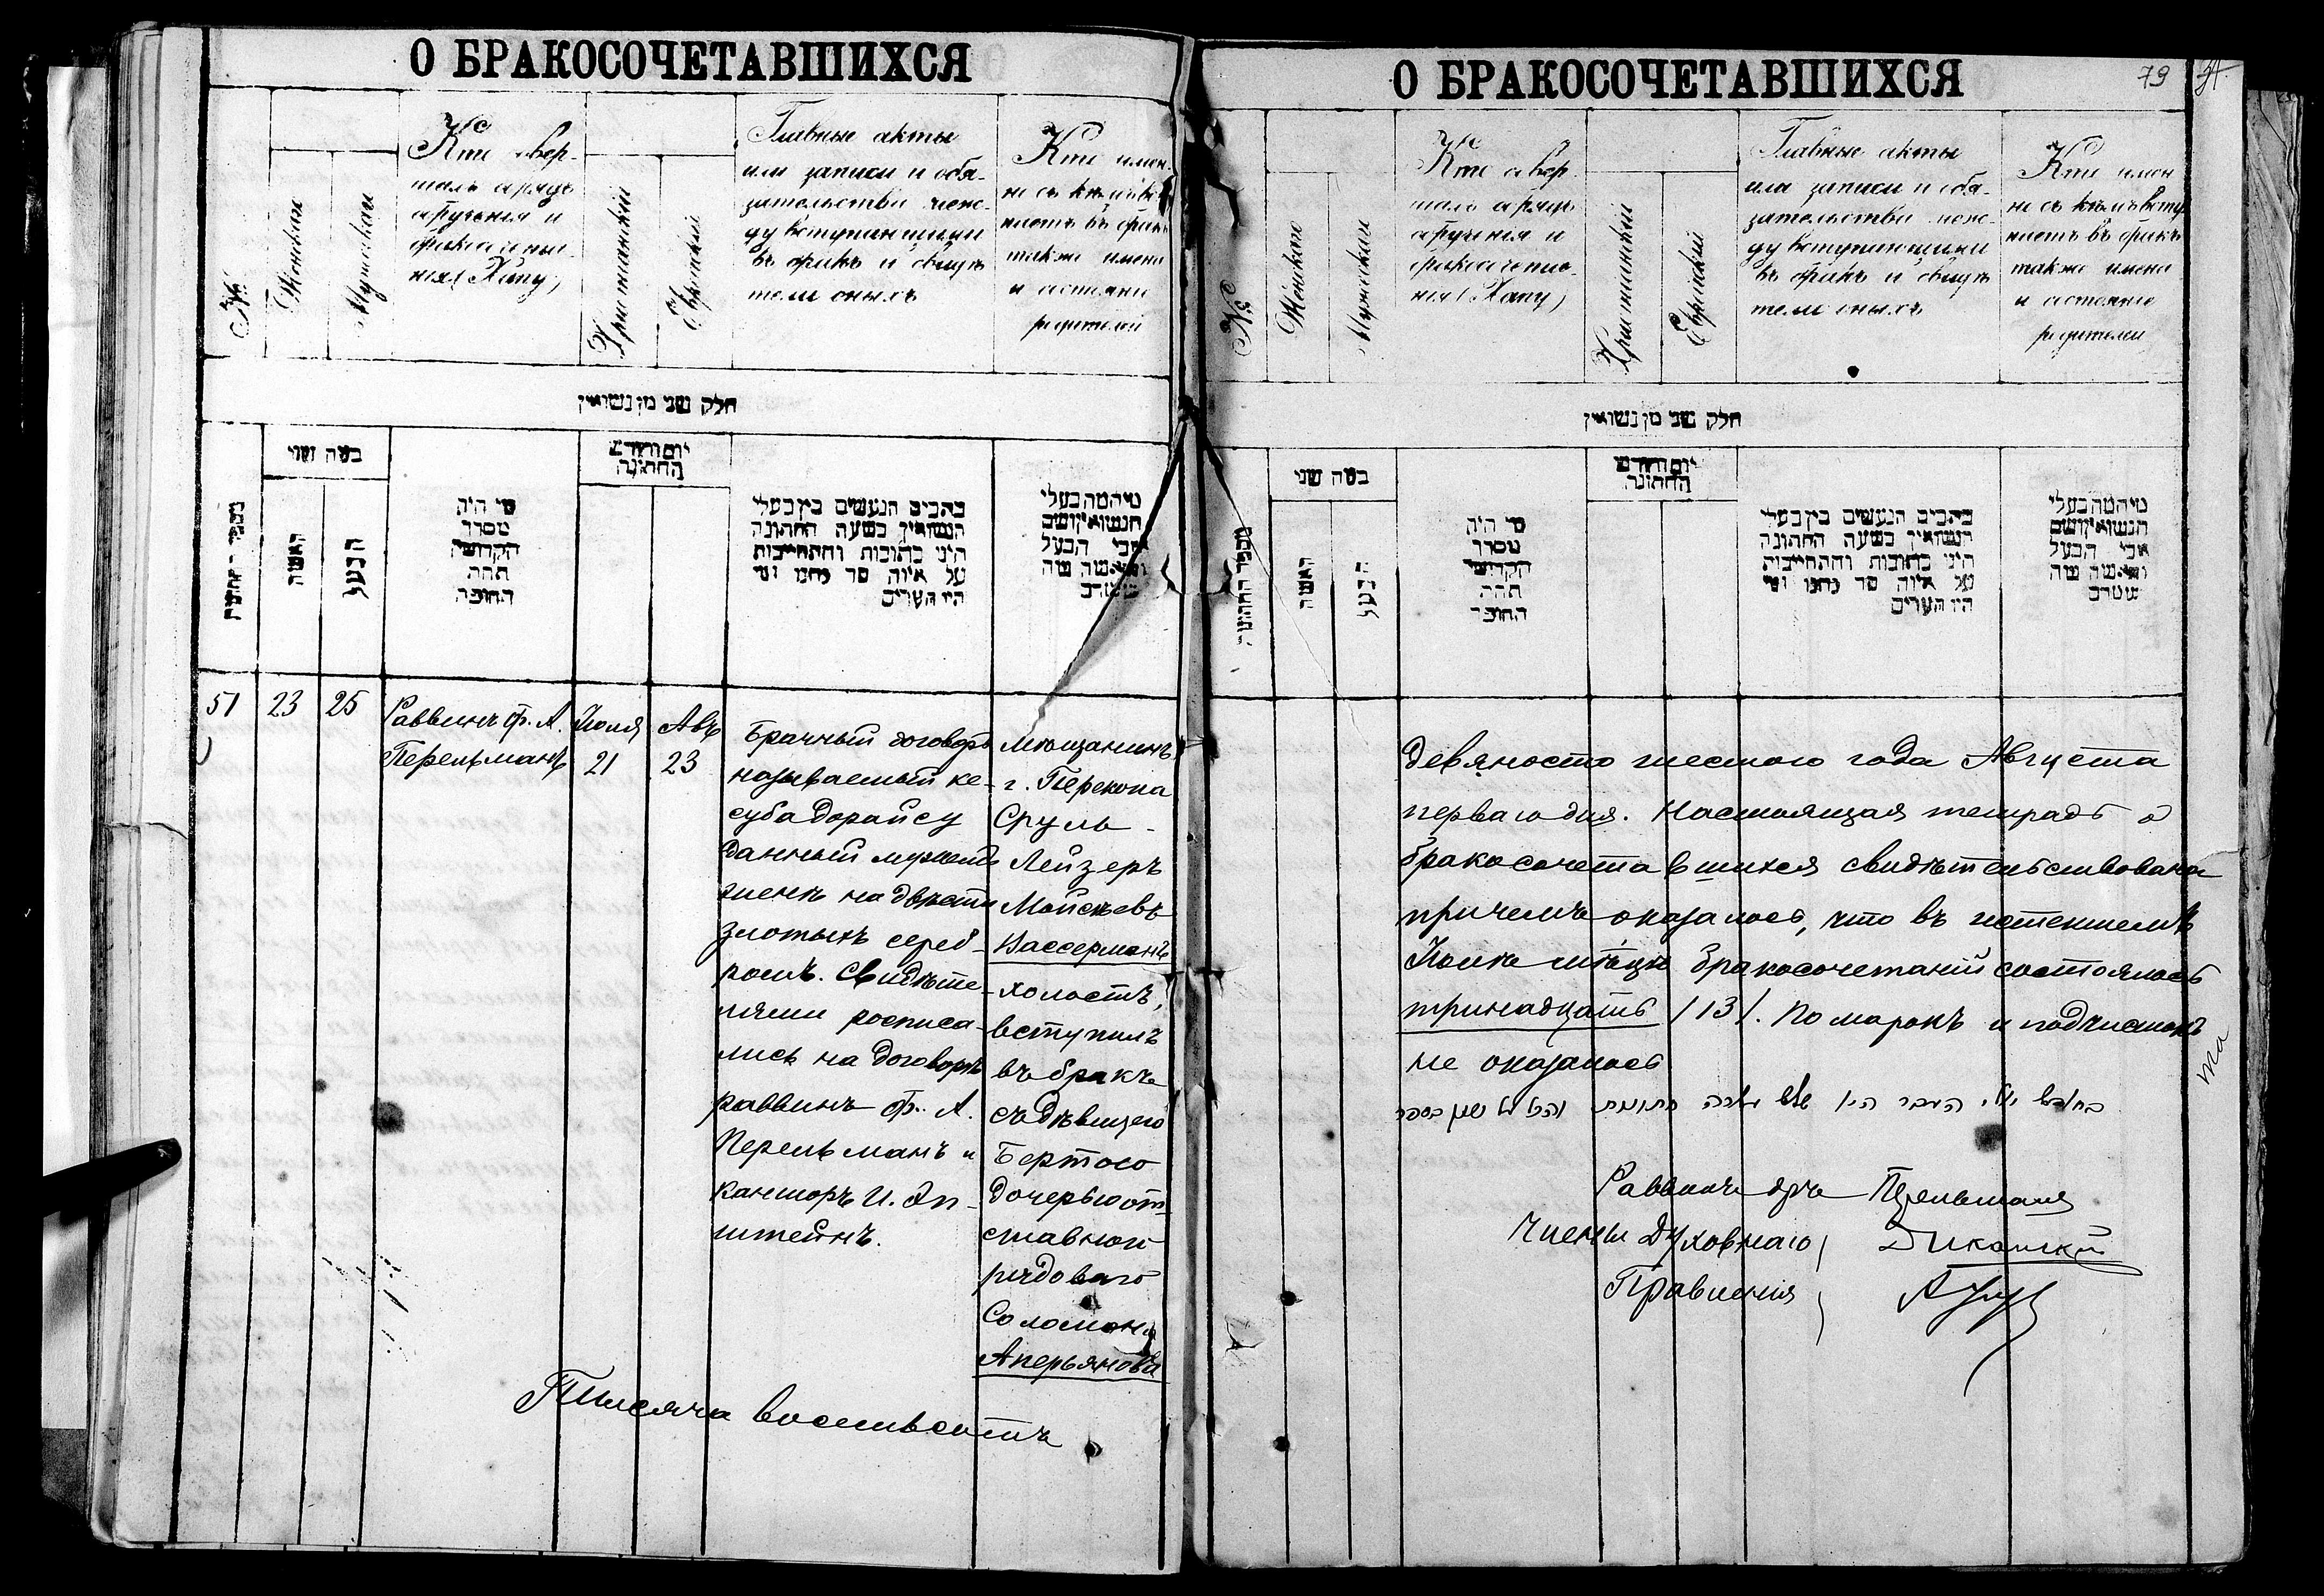 О БРАКОСОЧЕТАВШИХСЯ
№
Женскаго
Мужской
Кто совер-
шалъ обрядъ
обрученія и
бракосочета-
нія (Хупу)
Христіанскій
Еврейскій
Главные акты
или записи и обя-
зательства меж-
ду вступающими
въ бракъ и свидѣ-
тели оныхъ
Кто имен-
но съ кѣмъ всту-
паетъ въ бракъ
также имена
и состояніе
родителей
חלק שני מן נשואין
מספר החתונה
כמה שני
האשה
הבעל
מי היה
מסדר
הקדושין
תחת
החופה
יום וחודש
החתונה
כתבים הנעשים בין בעלי
הנשואין בשעה החתונה
היני כתובות והתחייבות
על איזה סך נתנו ומי
היו העדים
מיהמה בעלי
הנשואין ושם
אבי הבעל
והאשה
51
23
25
Раввинъ Ф. А.
Перельманъ
Іюля
21
Авъ
23
Брачный договоръ
называемый ке-
суба дорайсу
данный мужемъ
женѣ на двѣсти
злотыхъ сереб-
ромъ. Свидѣте-
лями росписа-
лись на договорѣ
раввинъ Ф. А.
Перельманъ и
канторъ И. Эп-
штейнъ.
Мѣщанинъ
г. Перекопа
Сруль-
Лейзеръ
Мойсѣевъ
Вассерманъ
холостъ,
вступилъ
въ бракъ
съ дѣвицею
Бертою
дочерью от-
ставного
рядоваго
Соломона
Аперьянова
Тысяча восемьсотъ
О БРАКОСОЧЕТАВШИХСЯ
79
№
Женскаго
Мужской
Кто совер-
шалъ обрядъ
обрученія и
бракосочета-
нія (Хупу)
Христіанскій
Еврейскій
Главные акты
или записи и обя-
зательства меж-
ду вступающими
въ бракъ и свидѣ-
тели оныхъ
Кто имен-
но съ кѣмъ всту-
паетъ въ бракъ
также имена
и состояніе
родителей
חלק שני מן נשואין
מספר החתונה
כמה שני
האשה
הבעל
מי היה
מסדר
הקדושין
תחת
החופה
יום וחודש
החתונה
כתבים הנעשים בין בעלי
הנשואין בשעה החתונה
היני כתובות והתחייבות
על איזה סך נתנו ומי
היו העדים
מיהמה בעלי
הנשואין ושם
אבי הבעל
והאשה
девяносто шестого года Августа
перваго дня. Настоящая тетрадь о
бракосочетавшихся свидѣтельствована
причемъ оказалось, что въ истекшемъ
Іюлѣ мѣсяцѣ бракосочетаній состоялось
тринадцать /13/. Помарокъ и подчистокъ
не оказалось
Раввинъ Перельманъ
Члены Духовнаго
Правленія